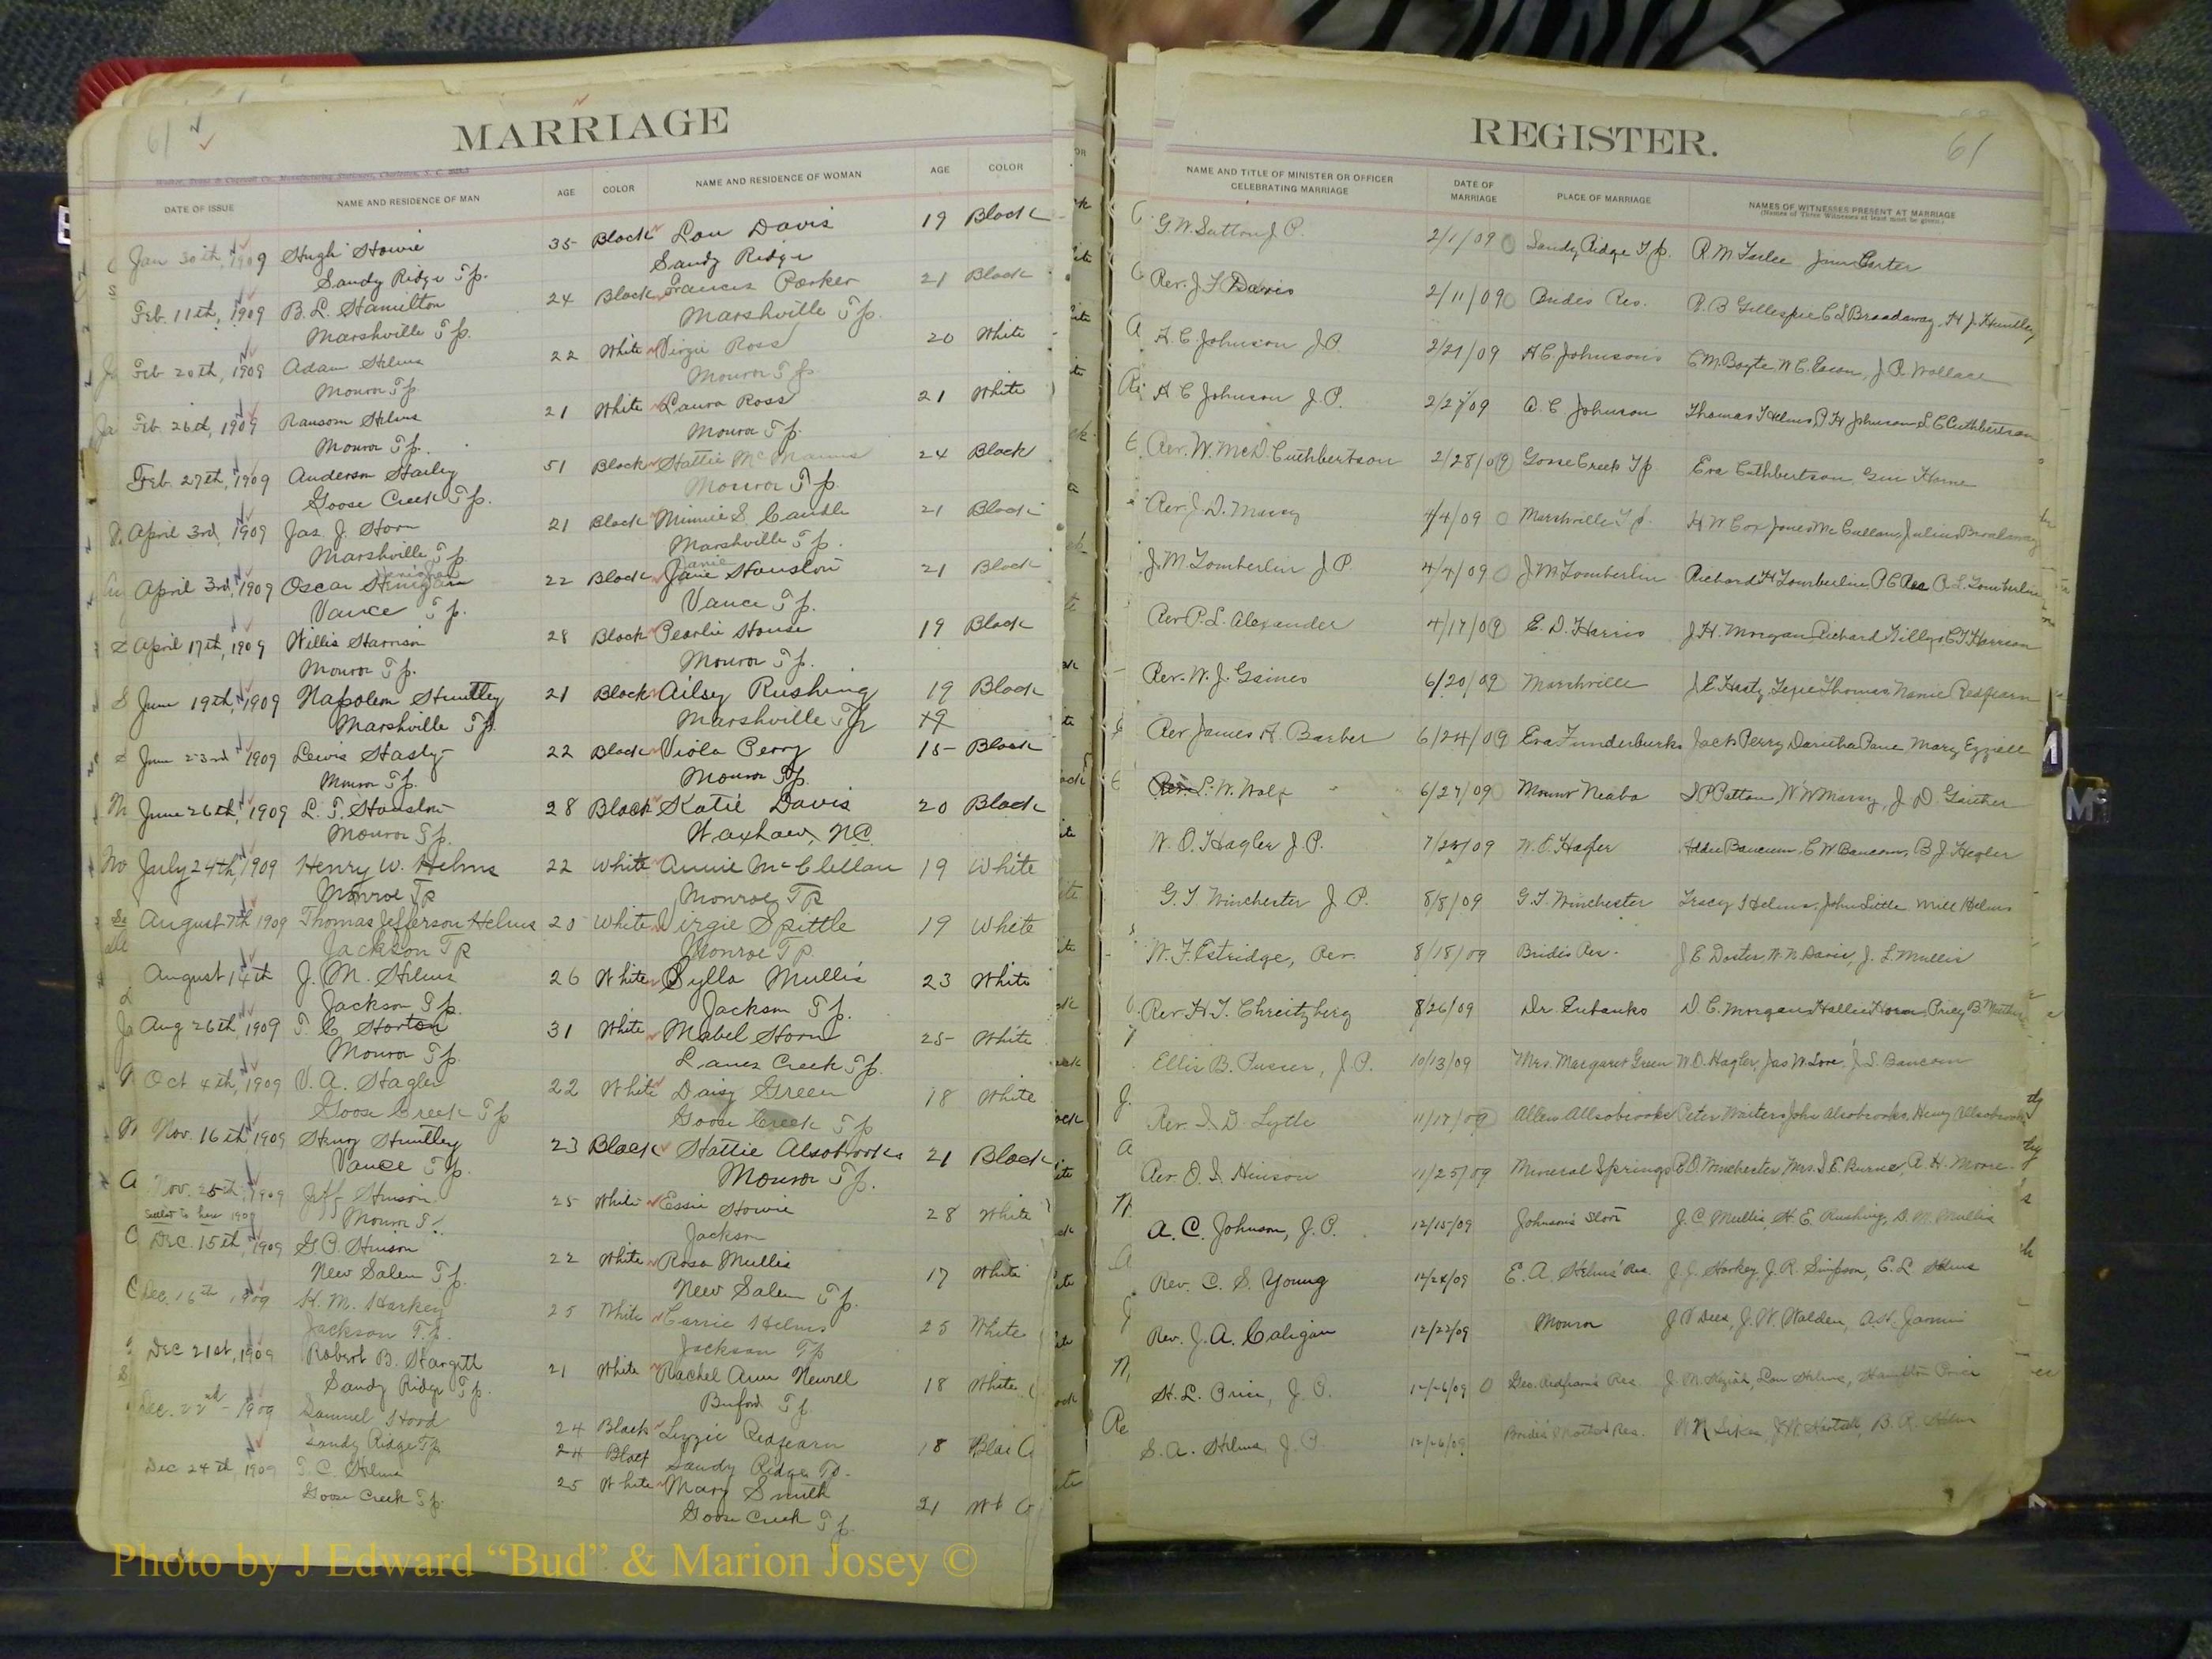 61
MARRIAGE
DATE OF ISSUE NAME AND RESIDENCE OF MAN AGE COLOR NAME AND RESIDENCE OF WOMAN AGE COLOR
Jan 30th, 1909 Hugh Howie 35 Black Lou Davis 19 Black
Sandy Ridge Tp. Sandy Ridge
Feb. 11th, 1909 B. L. Hamilton 24 Black Frances Parker 21 Black
Marshville Tp. Marshville Tp.
Feb 20th, 1909 Adam Helms 22 White Virgie Ross 20 White
Monroe Tp. Monroe Tp.
Feb. 26th, 1909 Ransom Helms 21 White Laura Ross 21 White
Monroe Tp. Monroe Tp.
Feb. 27th, 1909 Anderson 51 Black Hattie McManus 24 Black
Goose Creek Tp. Monroe Tp.
April 3rd, 1909 Jas. J. Horn 21 Black Minnie S. Caudle 21 Black
Marshville Tp. Marshville Tp.
April 3rd, 1909 Oscar 22 Black Janie Houston 21 Black
Vance Tp. Vance Tp.
April 17th, 1909 Willis Harrison 28 Black Pearlie House 19 Black
Monroe Tp. Monroe Tp.
June 19th, 1909 Napoleon Huntley 21 Black Ailsey Rushing 19 Black
Marshville Tp. Marshville Tp 19
June 23rd 1909 Lewis Hasty 22 Black Viola Perry 15 Black
Monroe Tp. Monroe Tp.
June 26th, 1909 L. T. Houston 28 Black Katie Davis 20 Black
Monroe Tp. Waxhaw, N.C.
July 24th, 1909 Henry W. Helms 22 White Annie McClellan 19 White
Monroe Tp Monroe Tp
August 7th 1909 Thomas Jefferson Helms 20 White Virgie Spittle 19 White
Jackson Tp Monroe Tp.
August 14th J. M. Helms 26 White Sylla Mullis 23 White
Jackson Tp. Jackson Tp.
Aug 26th, 1909 T. C. Horton 31 White Mabel Horn 25 White
Monroe Tp. Lanes Creek Tp.
Oct 4th, 1909 V. A. Hagler 22 White Daisy Green 18 White
Goose Creek Tp Goose Creek Tp
Nov. 16th, 1909 Huntley 23 Black Hattie Alsobrooks 21 Black
Vance Tp. Monroe Tp.
Nov. 25th, 1909 Jeff Hinson 25 White Essie Howie 28 White
Monroe T. Jackson
Dec. 15th, 1909 G. P. Hinson 22 White Rosa Mullis 17 White
New Salem Tp. New Salem Tp.
Dec. 16th 1909 H. M. Harkey 25 White Carrie Helms 25 White
Jackson T.p. Jackson Tp
Dec 21st, 1909 Robert B. Hargett 21 White Rachel Ann Newell 18 White
Sandy Ridge Tp. Buford Tp.
Dec. 22nd 1909 Samuel Hood 24 Black Lizzie Redfearn 18 Blac
Sandy Ridge Tp 24 Black Sandy Ridge Tp.
Dec 24th, 1909 T. C. Helms 25 White Mary Smith 21 Wh
Goose Creek Tp. Goose Creek Tp.
REGISTER.
61
NAME AND TITLE OF MINISTER OR OFFICER CELEBRATING MARRIAGE DATE OF MARRIAGE PLACE OF MARRIAGE NAMES OF WITNESSES PRESENT AT MARRIAGE
(Names of Three Witnesses at least must be given.)
G. W. Sutton J. P. 2/1/09 Sandy Ridge Tp. R. M. Jim Carter
Rev. J. F. Davis 2/11/09 Brides Res. R. B Gillespie C L Broadaway, H J Huntley
A. C Johnson J. P. 2/21/09 A C. Johnsons C M. Boyte, W C. Eason, J. R. Wallace
A C Johnson J. P. 2/27/09 A. C Johnson Thomas T Helms, P H Johnson L C Cuthbertson
Rev. W. McD. Cuthbertson 2/28/09 Goose Creek Tp Eva Cuthbertson, Horne
Rev. J. D. Massey 4/4/09 Marshville Tp. H W Cox Jones McCallum, Julius Broadaway
J. M Tomberlin J. P. 4/4/09 J M Tomberlin Richard H Tomberlin, P. C Rea R. L. Tomberlin
Rev P. L. Alexander 4/17/09 E. D. Harris J. H. Morgan, Richard C T Harrison
Rev. W. J. Gaines 6/20/09 Marshville J. E Hasty, Thomas Nannie Redfearn
Rev James A. Barber 6/24/09 Eva Funderburks Jack Perry Mary Ezzell
Rev. L. W. Wolf 6/27/09 Mount Neabo S P Patton, W W Massey, J D. Gaither
W. O. Hagler J. P. 7/24/09 C W Baucom, B J Hagler
G. T. Winchester J. P. 8/8/09 G. T. Winchester Tracy Helms, John Little Will Helms
W. F. Estridge, Rev. 8/15/09 Brides Res. J. E Doster, W. N. Davis, J. L. Mullis
Rev H. F. Chreitzberg 8/26/09 Dr. Eubanks D. C. Morgan, Hallie Horn
Ellis B. Pusser, J. P. 10/13/09 Mrs. Margaret Green W. O. Hagler, Jas W. Love, J. L. Baucom
Rev. I. D. Lytle 11/17/09 Allen Allsobrooks Peter Waiters John Alsobrooks, Henry Allsobrooks
Rev. O. I. Hinson 11/25/09 Mineral Springs R. O. Winchester, Mrs. I. E. Burns, A. H. Moore.
A. C. Johnson, J. P. 12/15/09 Johnson's Store J. C. Mullis, H. E. Rushing, D. M. Mullis
Rev. C. S. Young 12/24/09 E. A. Helms' Res. J. J. Harkey, J. R. Simpson, E. L. Helms
Rev. J. A. Caligan 12/22/09 Monroe J V Dees, J. W. Walden
H. L. Price, J. P. 12/26/09 Geo. Redfearn's Res. J. M. Keziah, Lon Helms, Hampton Price
S. A. Helms, J. P. 12/26/09 Res. W. N. Sikes, B. R. Helms
Photo by J Edward “Bud” & Marion Josey ©